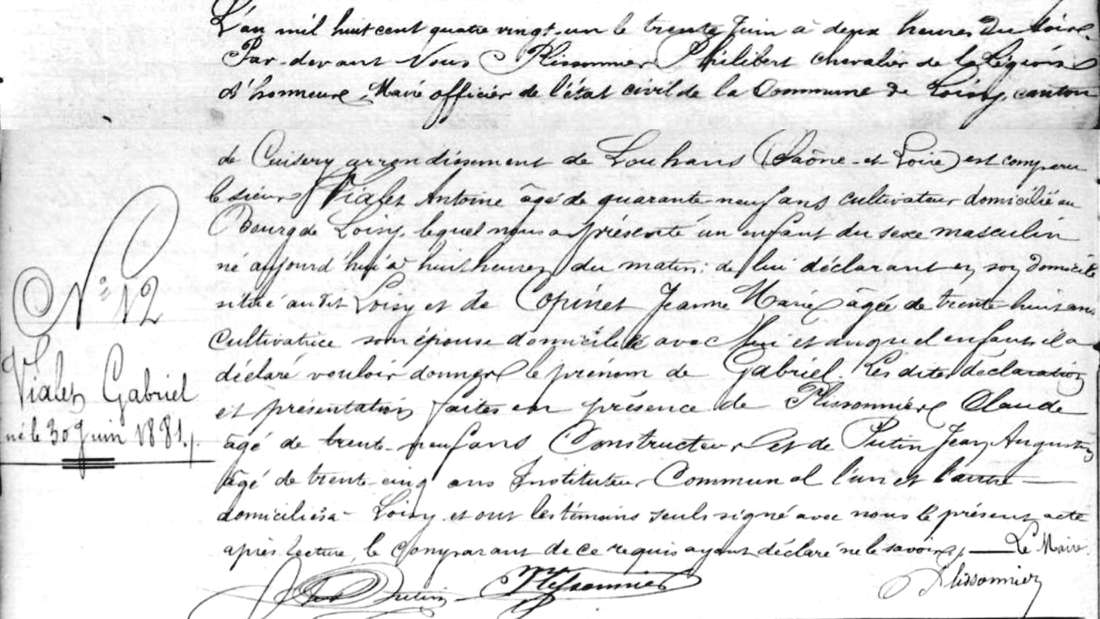 L'an mil huit cent quatre vingt-un le trente Juin à deux heures du soir
Par-devant Nous Plissonnier Philibert chevalier de la Légion
d'honneur Maire officier de l'état civil de la Commune de Loisy, canton
de Cuisery arrondissement de Louhans (Saône-et-Loire) est comparu
le sieur Vialet Antoine âgé de quarante-neuf ans cultivateur domicilié au
Bourg de Loisy, lequel nous a présenté un enfant du sexe masculin
né aujourd'hui à huit heures du matin: de lui déclarant en son domicile
situé audit Loisy et de Copinet Jeanne Marie âgée de trente huit ans
cultivatrice son épouse domiciliée avec lui et auquel enfant il a
déclaré vouloir donner le prénom de Gabriel. Les dites déclaration
et présentation faites en présence de Plissonnier Claude
âgé de trente-neuf ans Constructeur et de Putin Jean Augustin
âgé de trente-cinq ans Instituteur Communal l'un et l'autre
domiciliés à Loisy et ont les témoins seuls signé avec nous le présent acte
après lecture, le comparant de ce requis ayant déclaré ne le savoir. Le Maire
N° 12
Vialet Gabriel
né le 30 Juin 1881.
Putin Plissonnier Plissonnier